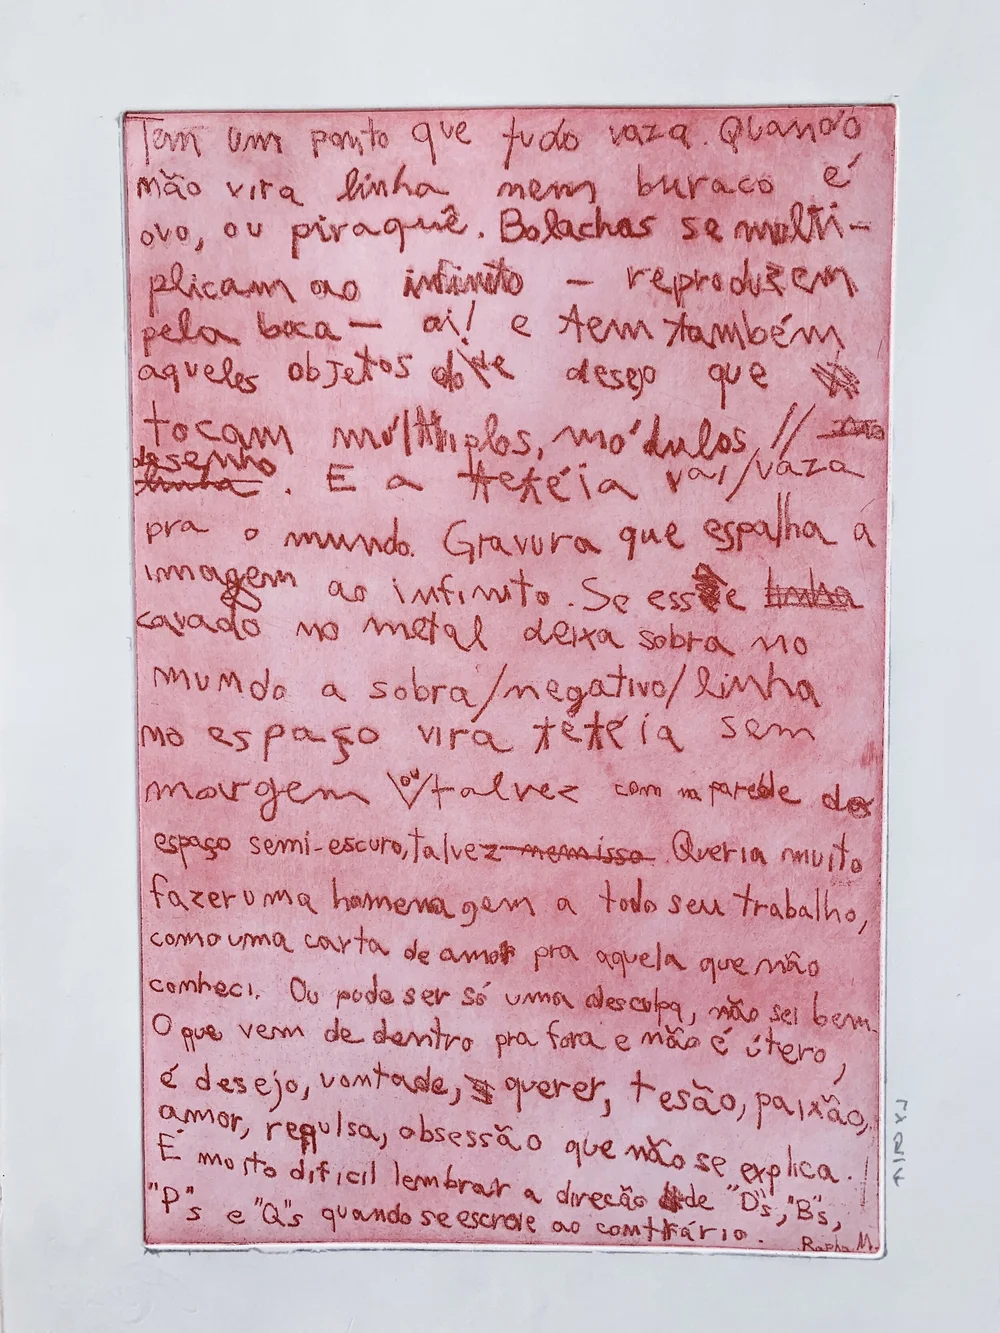 Tem um ponto que tudo vaza. Quando
não vira linha nem buraco é
ovo, ou piraquê. Bolachas se multi-
plicam ao infinito – reproduzem
pela boca – ai! e tem também
aqueles objetos de desejo que
tocam múltiplos, módulos //
desenho
linha . E a tetéia vai/vaza
pra o mundo. Gravura que espalha a
imagem ao infinito. Se esse linha
cavado no metal deixa sobra no
mundo a sobra/negativo/linha
no espaço vira tetéia sem
margem \ou/ talvez com na parede do
espaço semi-escuro, talvez nem isso. Queria muito
fazer uma homenagem a todo seu trabalho,
como uma carta de amor pra aquela que não
conheci. Ou pode ser só uma desculpa, não sei bem.
O que vem de dentro pra fora e não é útero,
é desejo, vontade, querer, tesão, paixão,
amor, repulsa, obsessão que não se explica.
É muito dificil lembrar a direcão de "D"s, "B"s,
"P"s e "Q"s quando se escreve ao contrário.
Rapha M.